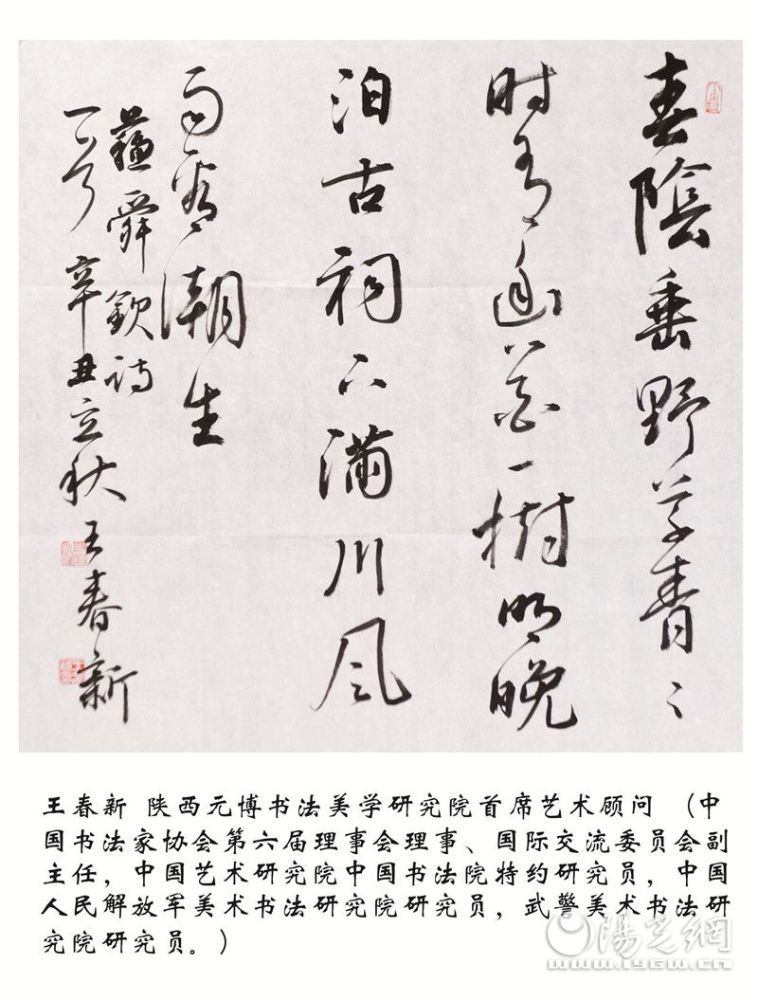 春陰垂野草青〻
时有幽花一樹明晚
泊古祠下滿川风
雨看潮生
蘇舜欽诗
一首 辛丑立秋 王春新
王春新 陕西元博书法美学研究院首席艺术顾问 （中
国书法家协会第六届理事会理事、国际交流委员会副
主任，中国艺术研究院中国书法院特约研究员，中国
人民解放军美术书法研究院研究员，武警美术书法研
究院研究员。）
陽光網
www.iygw.cn